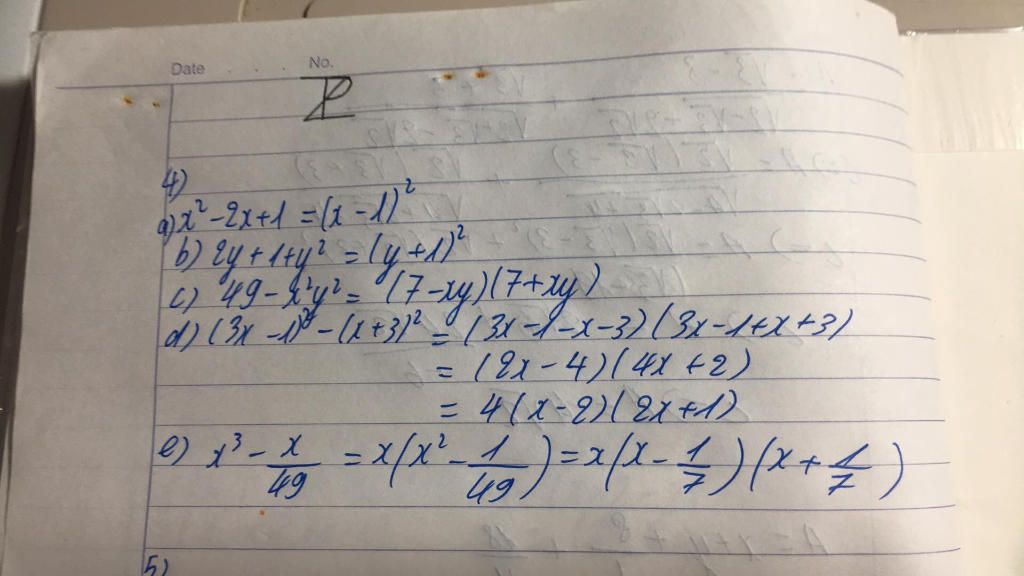 Date No.
4)
a) x² - 2x + 1 = (x - 1)²
b) 2y + 1 + y² = (y + 1)²
c) 49 - x²y² = (7 - xy)(7 + xy)
d) (3x - 1)² - (x + 3)² = (3x - 1 - x - 3)(3x - 1 + x + 3)
= (2x - 4)(4x + 2)
= 4(x - 2)(2x + 1)
e) x³ - x/49 = x(x² - 1/49) = x(x - 1/7)(x + 1/7)
5)